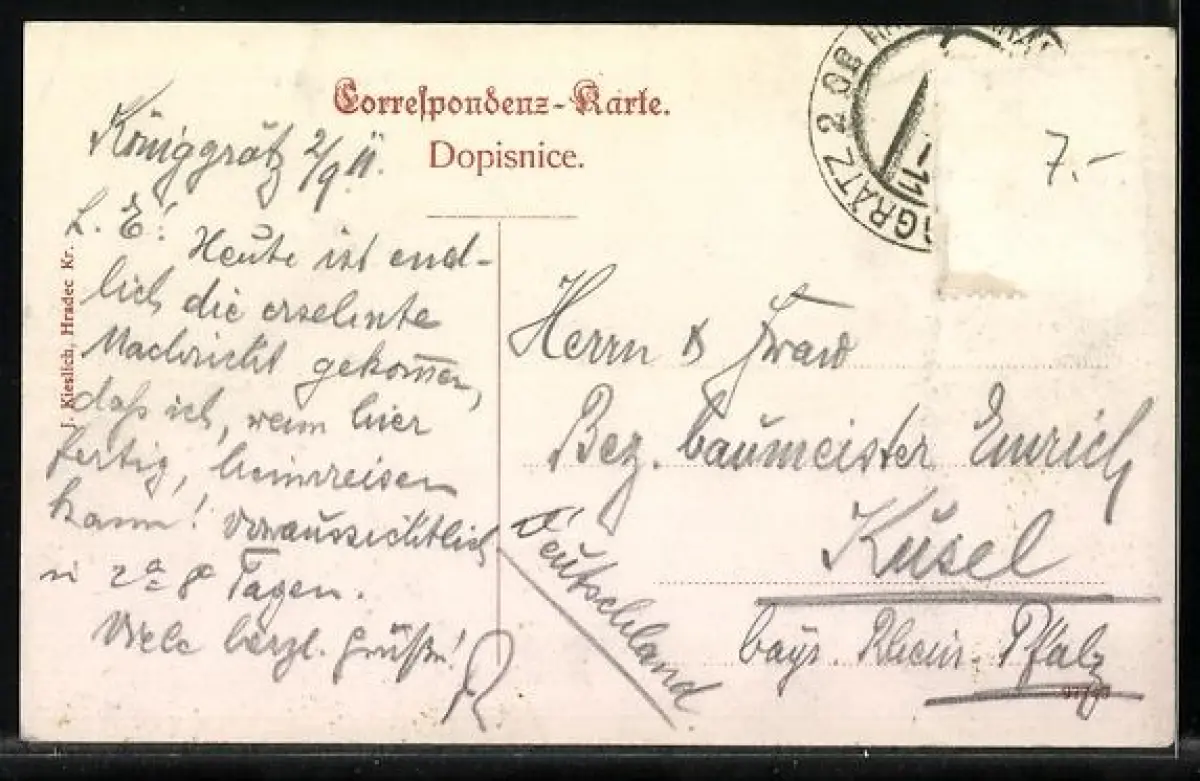 Correspondenz-Karte.
Dopisnice.
GRÄTZ 2
11
7.-
J. Kieslich, Hradec Kr.
Königgrätz 2/9 11.
L. E! Heute ist end-
lich die ersehnte
Nachricht gekommen,
daß ich, wenn hier
fertig, heimreisen
kann! Voraussichtlich
in 8 Tagen.
Viele herzl. Grüße!
R
Herrn &
Bez. baumeister Emrich
Kusel
bayr. Rhein-Pfalz
Deutschland